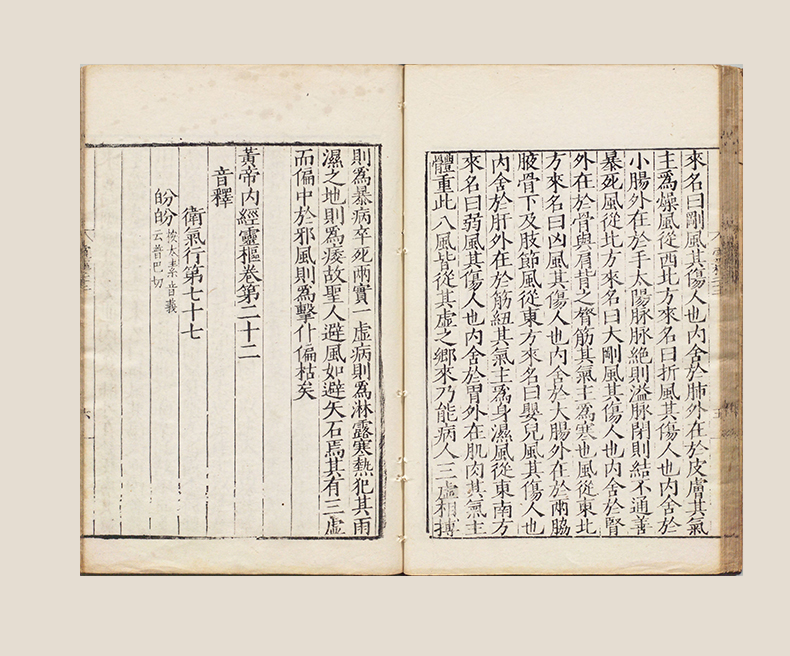 來名曰剛風其傷人也内舍於肺外在於皮膚其氣
主為燥風從西北方來名曰折風其傷人也内舍於
小腸外在於手太陽脉脉絶則溢脉閉則結不通善
暴死風從北方來名曰大剛風其傷人也内舍於腎
外在於骨與肩背之膂筋其氣主為寒也風從東北
方來名曰凶風其傷人也内舍於大腸外在於兩脇
腋骨下及肢節風從東方來名曰嬰兒風其傷人也
内舍於肝外在於筋紐其氣主為身濕風從東南方
來名曰弱風其傷人也内舍於胃外在肌肉其氣主
體重此八風皆從其虛之鄉來乃能病人三虛相搏
則為暴病卒死兩實一虛病則為淋露寒熱犯其雨
濕之地則為痿故聖人避風如避矢石焉其有三虛
而偏中於邪風則為擊仆偏枯矣
黃帝内經靈樞卷第二十二
音釋
衛氣行第七十七
盼盼
按太素音義
云普巴切
六